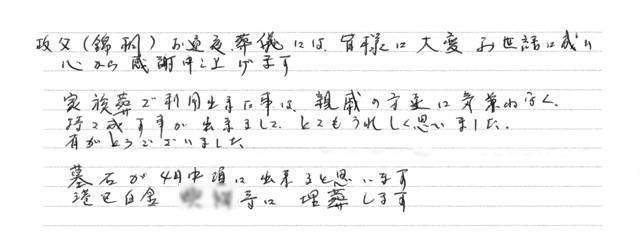 故父(錦桐)お通夜、葬儀には、皆様に大変お世話に成り
心から感謝申し上げます
家族葬で利用出来た事は、親戚の方達に気兼ね

なく、
成す事が出来まして、とてもうれしく思いました。
有がとうございました。
墓石が4月中頃に出来ると思います
港区白金 寺に埋葬します